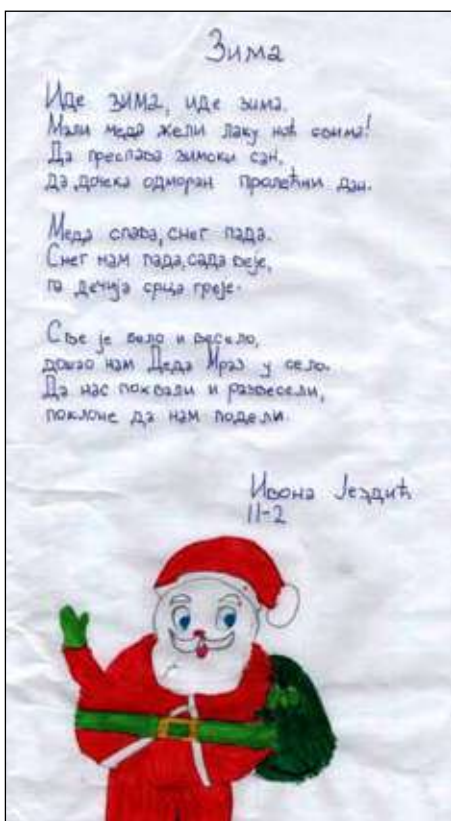 Зима
Иде зима, иде зима.
Мали меда жели лаку ноћ свима!
Да преспава зимски сан,
да дочека одморан пролећни дан.
Меда спава, снег пада.
Снег нам пада, сада веје,
па дечија срца греје.
Све је бело и весело,
дошао нам Деда Мраз у село.
Да нас похвали и развесели,
поклоне да нам подели.
Ивона Јездић
II-2